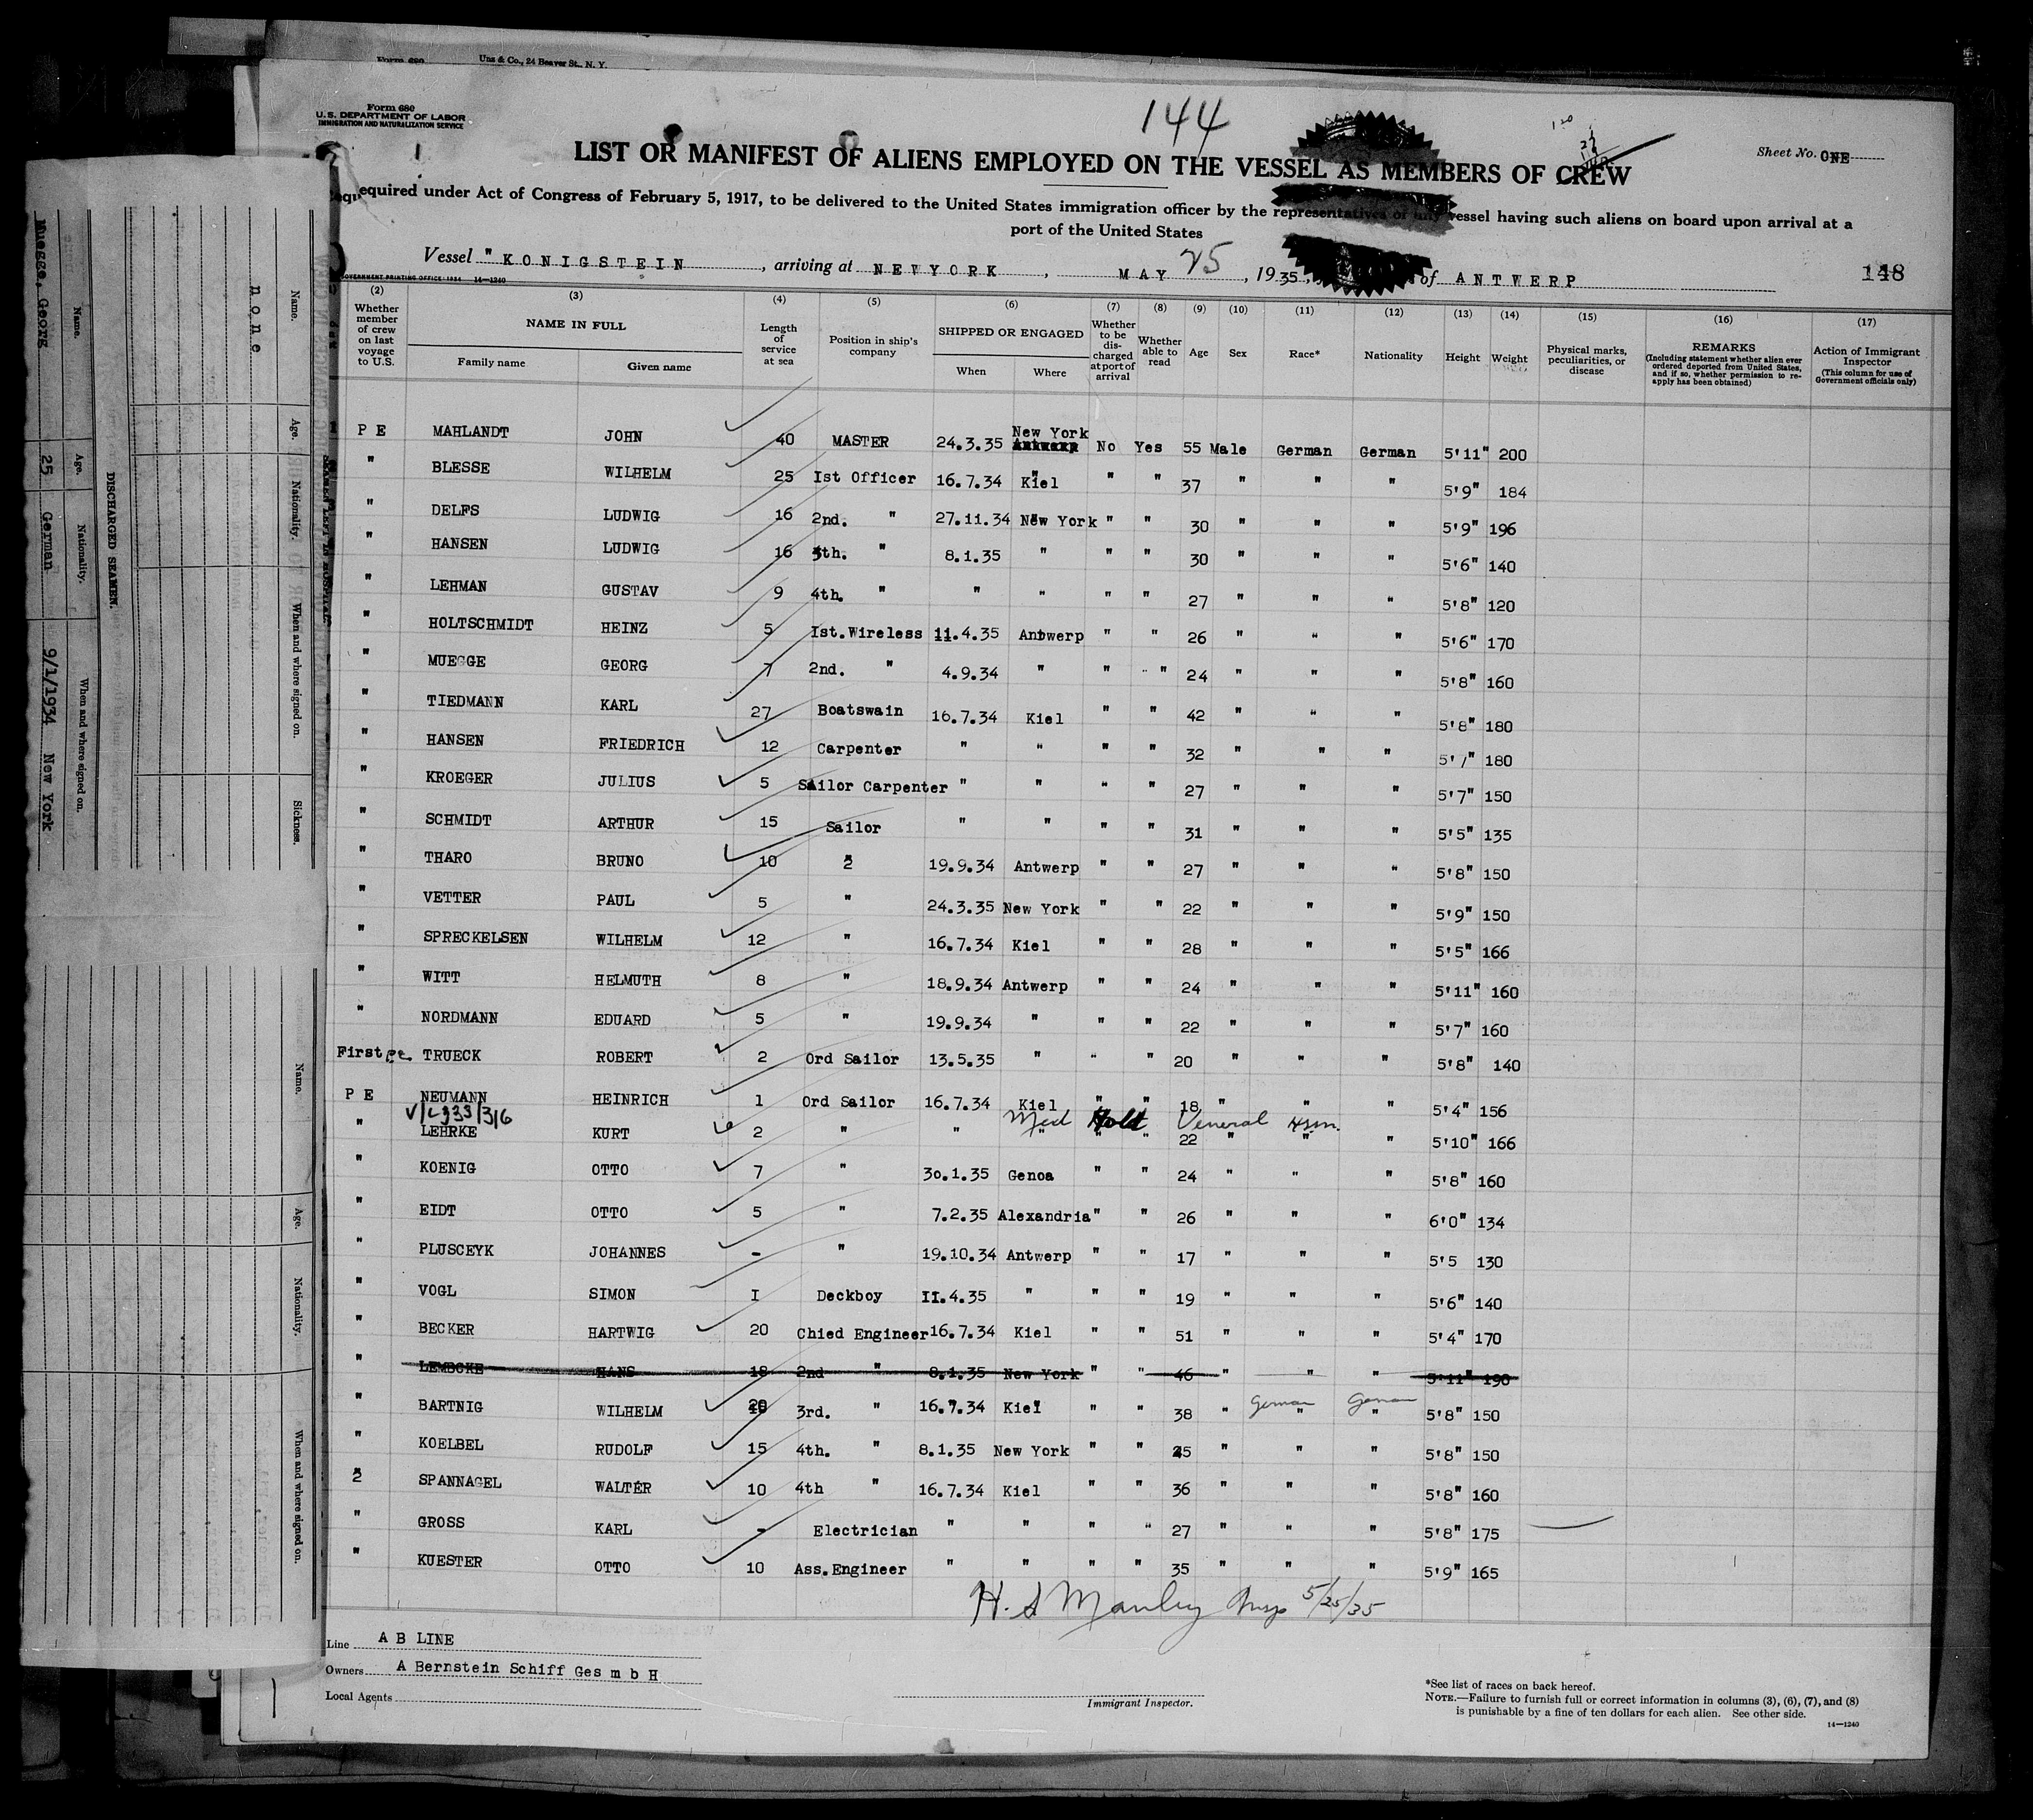 Form 680 Uns & Co., 24 Beaver St., N. Y.
Form 680
U.S. DEPARTMENT OF LABOR
IMMIGRATION AND NATURALIZATION SERVICE
144
Sheet No. ONE
LIST OR MANIFEST OF ALIENS EMPLOYED ON THE VESSEL AS MEMBERS OF CREW
equired under Act of Congress of February 5, 1917, to be delivered to the United States immigration officer by the representatives of any vessel having such aliens on board upon arrival at a
port of the United States
Vessel "KONIGSTEIN, arriving at NEWYORK, MAY 25, 1935, of ANTWERP
148
GOVERNMENT PRINTING OFFICE 1934 14—1240
(2) (3) (4) (5) (6) (7) (8) (9) (10) (11) (12) (13) (14) (15) (16) (17)
Whether member of crew on last voyage to U.S.
NAME IN FULL
Family name Given name
Length of service at sea
Position in ship's company
SHIPPED OR ENGAGED
When Where
Whether to be discharged at port of arrival
Whether able to read
Age Sex Race* Nationality Height Weight
Physical marks, peculiarities, or disease
REMARKS
(Including statement whether alien ever ordered deported from United States, and if so, whether permission to reapply has been obtained)
Action of Immigrant Inspector
(This column for use of Government officials only)
P E MAHLANDT JOHN 40 MASTER 24.3.35 New York Antwerp No Yes 55 Male German German 5'11" 200
" BLESSE WILHELM 25 Ist Officer 16.7.34 Kiel " " 37 " " " 5'9" 184
" DELFS LUDWIG 16 2nd. " 27.11.34 New York " " 30 " " " 5'9" 196
" HANSEN LUDWIG 16 3th. " 8.1.35 " " " 30 " " " 5'6" 140
" LEHMAN GUSTAV 9 4th. " " " " " 27 " " " 5'8" 120
" HOLTSCHMIDT HEINZ 5 Ist.Wireless 11.4.35 Antwerp " " 26 " " " 5'6" 170
" MUEGGE GEORG 7 2nd. " 4.9.34 " " " 24 " " " 5'8" 160
" TIEDMANN KARL 27 Boatswain 16.7.34 Kiel " " 42 " " " 5'8" 180
" HANSEN FRIEDRICH 12 Carpenter " " " " 32 " " " 5'7" 180
" KROEGER JULIUS 5 Sailor Carpenter " " " " 27 " " " 5'7" 150
" SCHMIDT ARTHUR 15 Sailor " " " " 31 " " " 5'5" 135
" THARO BRUNO 10 2 19.9.34 Antwerp " " 27 " " " 5'8" 150
" VETTER PAUL 5 " 24.3.35 New York " " 22 " " " 5'9" 150
" SPRECKELSEN WILHELM 12 " 16.7.34 Kiel " " 28 " " " 5'5" 166
" WITT HELMUTH 8 " 18.9.34 Antwerp " " 24 " " " 5'11" 160
" NORDMANN EDUARD 5 " 19.9.34 " " " 22 " " " 5'7" 160
First pe TRUECK ROBERT 2 Ord Sailor 13.5.35 " " " 20 " " " 5'8" 140
P E NEUMANN HEINRICH 1 Ord Sailor 16.7.34 Kiel " " 18 " " " 5'4" 156
Med Hold Veneral
" LEHRKE KURT 2 " " " " " 22 " " " 5'10" 166
" KOENIG OTTO 7 " 30.1.35 Genoa " " 24 " " " 5'8" 160
" EIDT OTTO 5 " 7.2.35 Alexandria " " 26 " " " 6'0" 134
" PLUSCEYK JOHANNES - " 19.10.34 Antwerp " " 17 " " " 5'5 130
" VOGL SIMON I Deckboy II.4.35 " " " 19 " " " 5'6" 140
" BECKER HARTWIG 20 Chied Engineer 16.7.34 Kiel " " 51 " " " 5'4" 170
" LEMBCKE HANS 18 2nd " 8.1.35 New York " " 46 " " " 5'11" 190
" BARTNIG WILHELM 20 3rd. " 16.7.34 Kiel " " 38 " German " German " 5'8" 150
" KOELBEL RUDOLF 15 4th. " 8.1.35 New York " " 35 " " " 5'8" 150
2 SPANNAGEL WALTER 10 4th " 16.7.34 Kiel " " 36 " " " 5'8" 160
" GROSS KARL - Electrician " " " " 27 " " " 5'8" 175
" KUESTER OTTO 10 Ass.Engineer " " " " 35 " " " 5'9" 165
H. S Manley Insp 5/25/35
Line A B LINE
Owners A Bernstein Schiff Ges m b H
Local Agents
Immigrant Inspector.
*See list of races on back hereof.
NOTE.—Failure to furnish full or correct information in columns (3), (6), (7), and (8)
is punishable by a fine of ten dollars for each alien. See other side.
14—1240
DISCHARGED SEAMEN.
Name. Age. Nationality. When and where signed on.
Muegge, Georg 25 German 9/1/1934 New York
Name. Age. Nationality. When and where signed on. Sickness.
none
Name. Age. Nationality. When and where signed on.